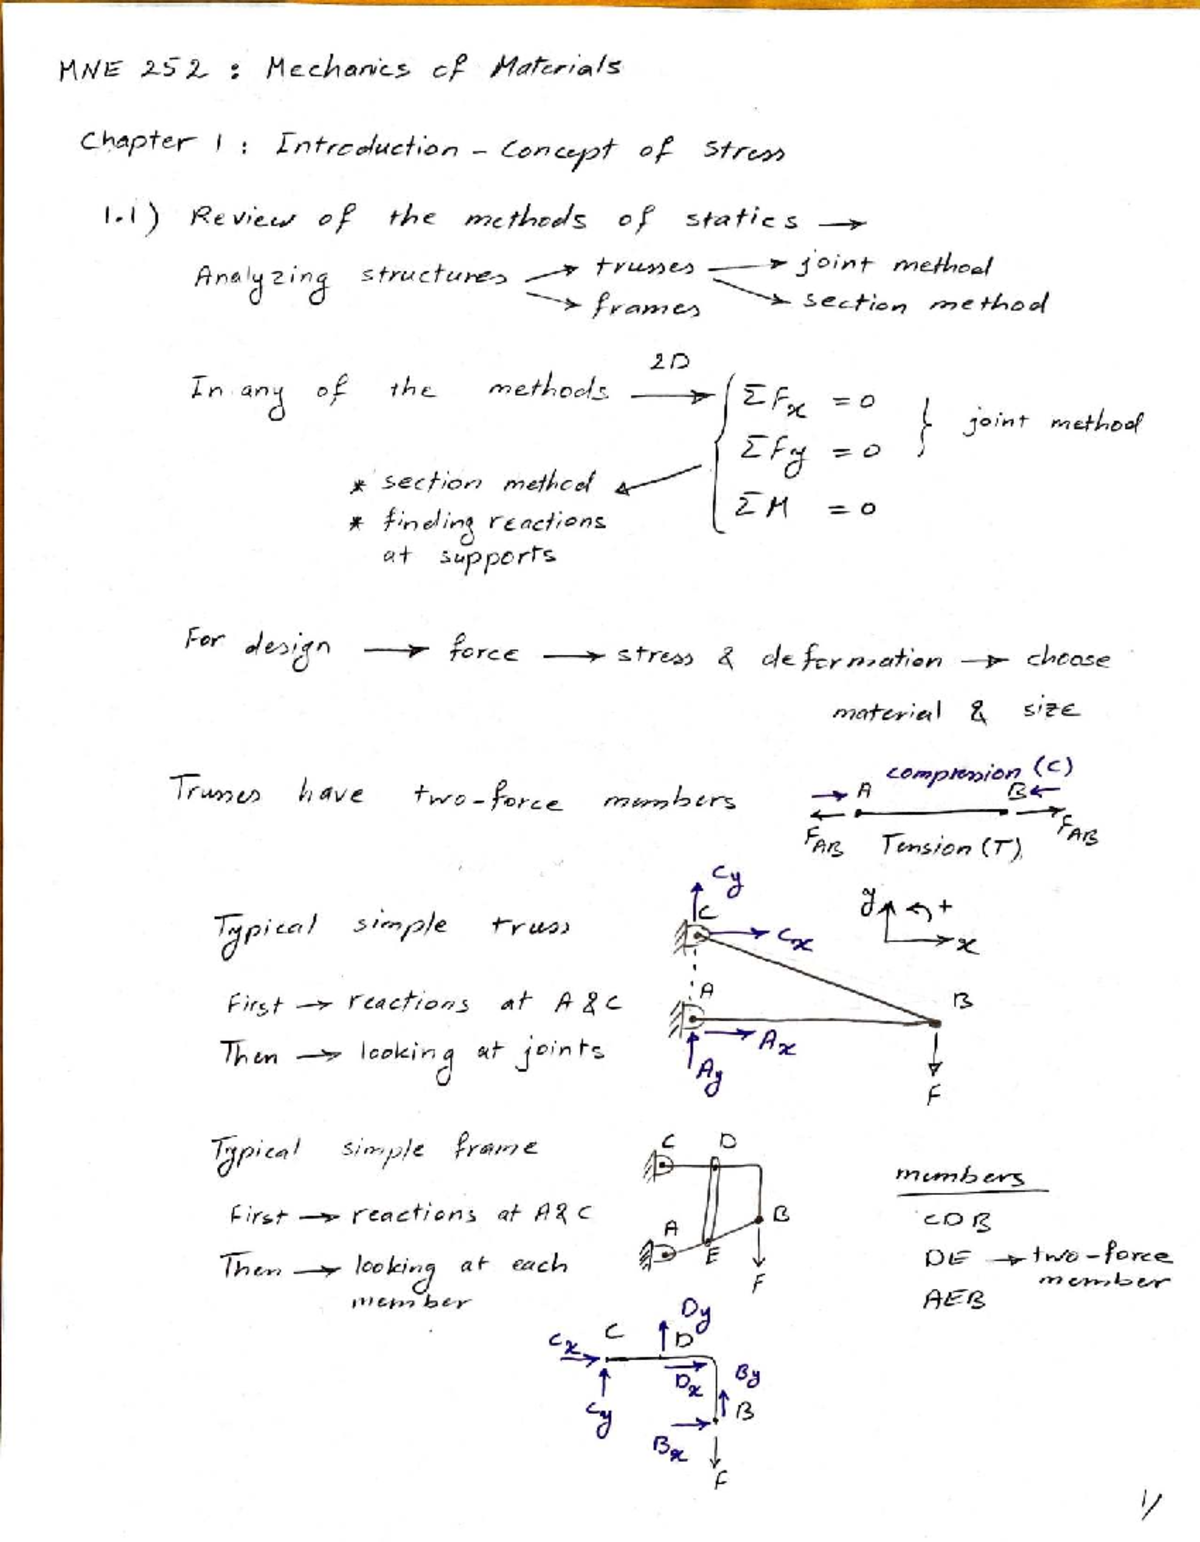 MNE 252 : Mechanics of Materials
Chapter 1 : Introduction - Concept of Stress
1.1) Review of the methods of statics →
Analyzing structures → trusses → joint method
→ frames → section method
2D
In any of the methods → { ΣFx = 0 } joint method
ΣFy = 0
* section method ← ΣM = 0
* finding reactions
at supports
For design → force → stress & deformation → choose
material & size
compression (C)
Trusses have two-force members → A B ←
FAB Tension (T) FAB
Cy
y +
Typical simple truss C Cx x
First → reactions at A & C A B
Then → looking at joints Ax
Ay F
Typical simple frame C D members
First → reactions at A & C A B CDB
Then → looking at each E F DE → two-force
member member
AEB
Dy
Cx C D
Dx By
Cy B
Bx
F
1/